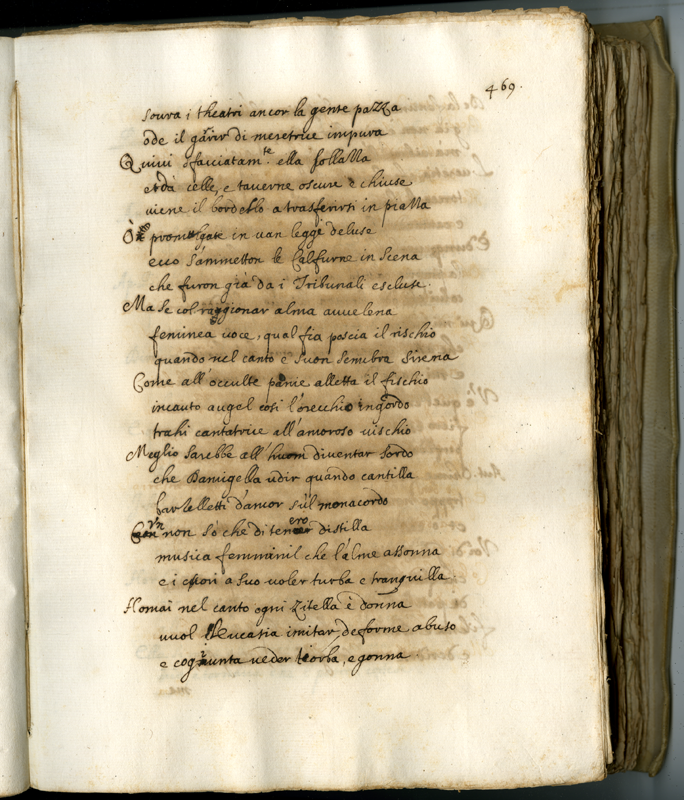 469.
soura i theatri ancor la gente pazza
ode il garrir di meretrice impura
Quiui sfacciatam.te ella sollazza
et da celle, e tauerne oscure e chiuse
uiene il bordello a trasferirsi in piazza
Ò promulgate in uan legge deluse
ecco s'ammetton le Calfurne in scena
che furon già da i Tribunali escluse.
Ma se col raggionar alma auuelena
feminea uoce, qual fia poscia il rischio
quando nel canto e suon sembra sirena
Come all'occulte panie alletta il fischio
incauto augel così l'orecchio ingordo
trahi cantatrice all'amoroso uischio
Meglio sarebbe all'huom diuentar sordo
che Damigella udir quando cantilla
barzelletti d'amor sù'l monacordo
Vn non sò che di tenero distilla
musica femminil che l'alme assonna
e i cuori a suo uoler turba e tranquilla.
Homai nel canto ogni Zitella è donna
uuol Leucasia imitar, deforme abuso
e congiunta ueder tiorba, e gonna